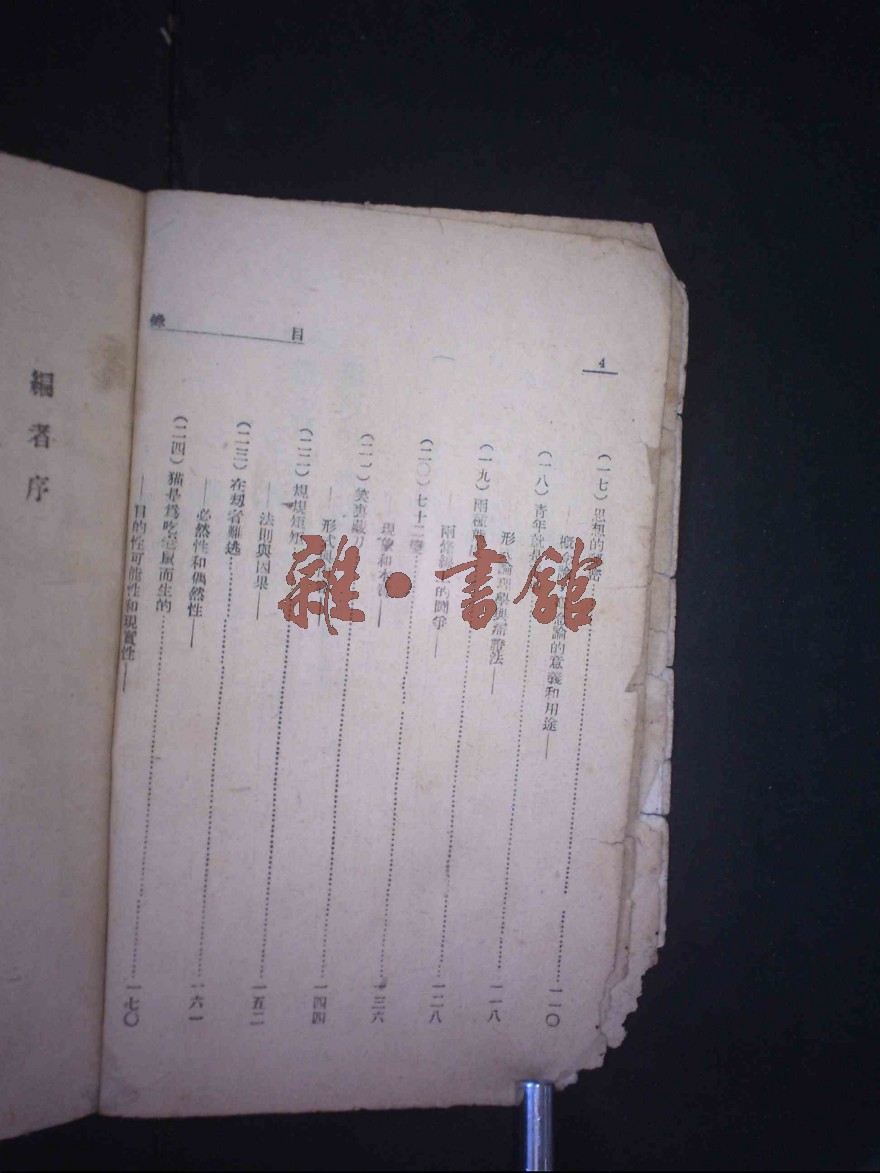 目錄
4
(一七)思想的 一一〇
論的意義和用途——
(一八)青年就是 一一八
形式論理學與辯證法——
(一九)兩種 一二八
——兩條 的鬭爭——
(二〇)七十二變 一三六
現象和本質——
(二一)笑裏藏刀 一四四
——形式
(二二)規規矩矩 一五二
——法則與因果——
(二三)在刼者難逃 一六一
——必然性和偶然性——
(二四)猫是爲吃老鼠而生的 一七〇
——目的性可能性和現實性——
編者序
雜·書館